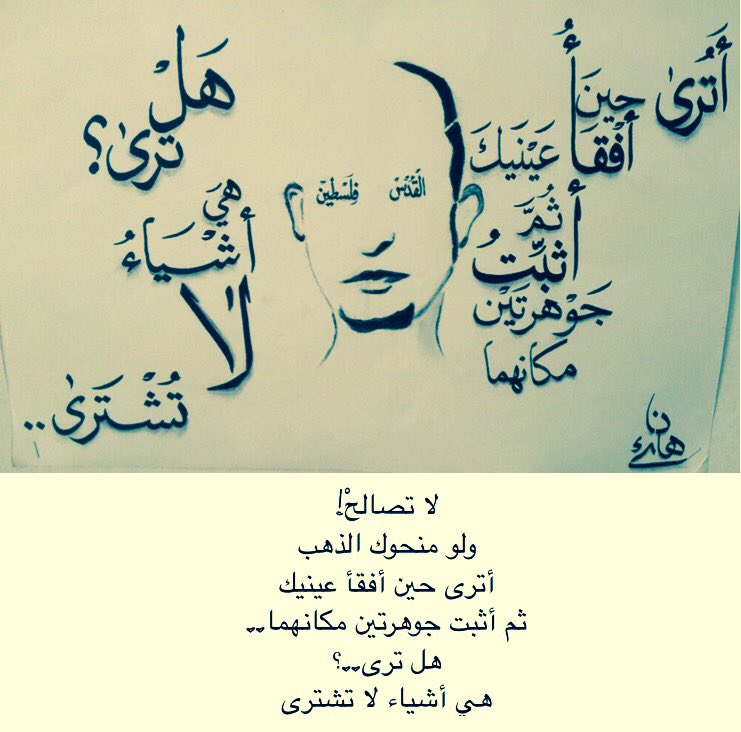 أَتُرىٰ حينَ
أُفْقَأُ عَيْنَيكَ
ثُمَّ
أثبِّتُ
جَوْهرتَيْن
مكانهما
هَلْ
ترىٰ؟
هِيَ
أشْيَاءُ
لَا
تُشْتَرىٰ..
القُدْس
فِلَسْطين
لا تصالحْ!
ولو منحوك الذهب
أترى حين أفقأ عينيك
ثم أثبت جوهرتين مكانهما..
هل ترى..؟
هي أشياء لا تشترى